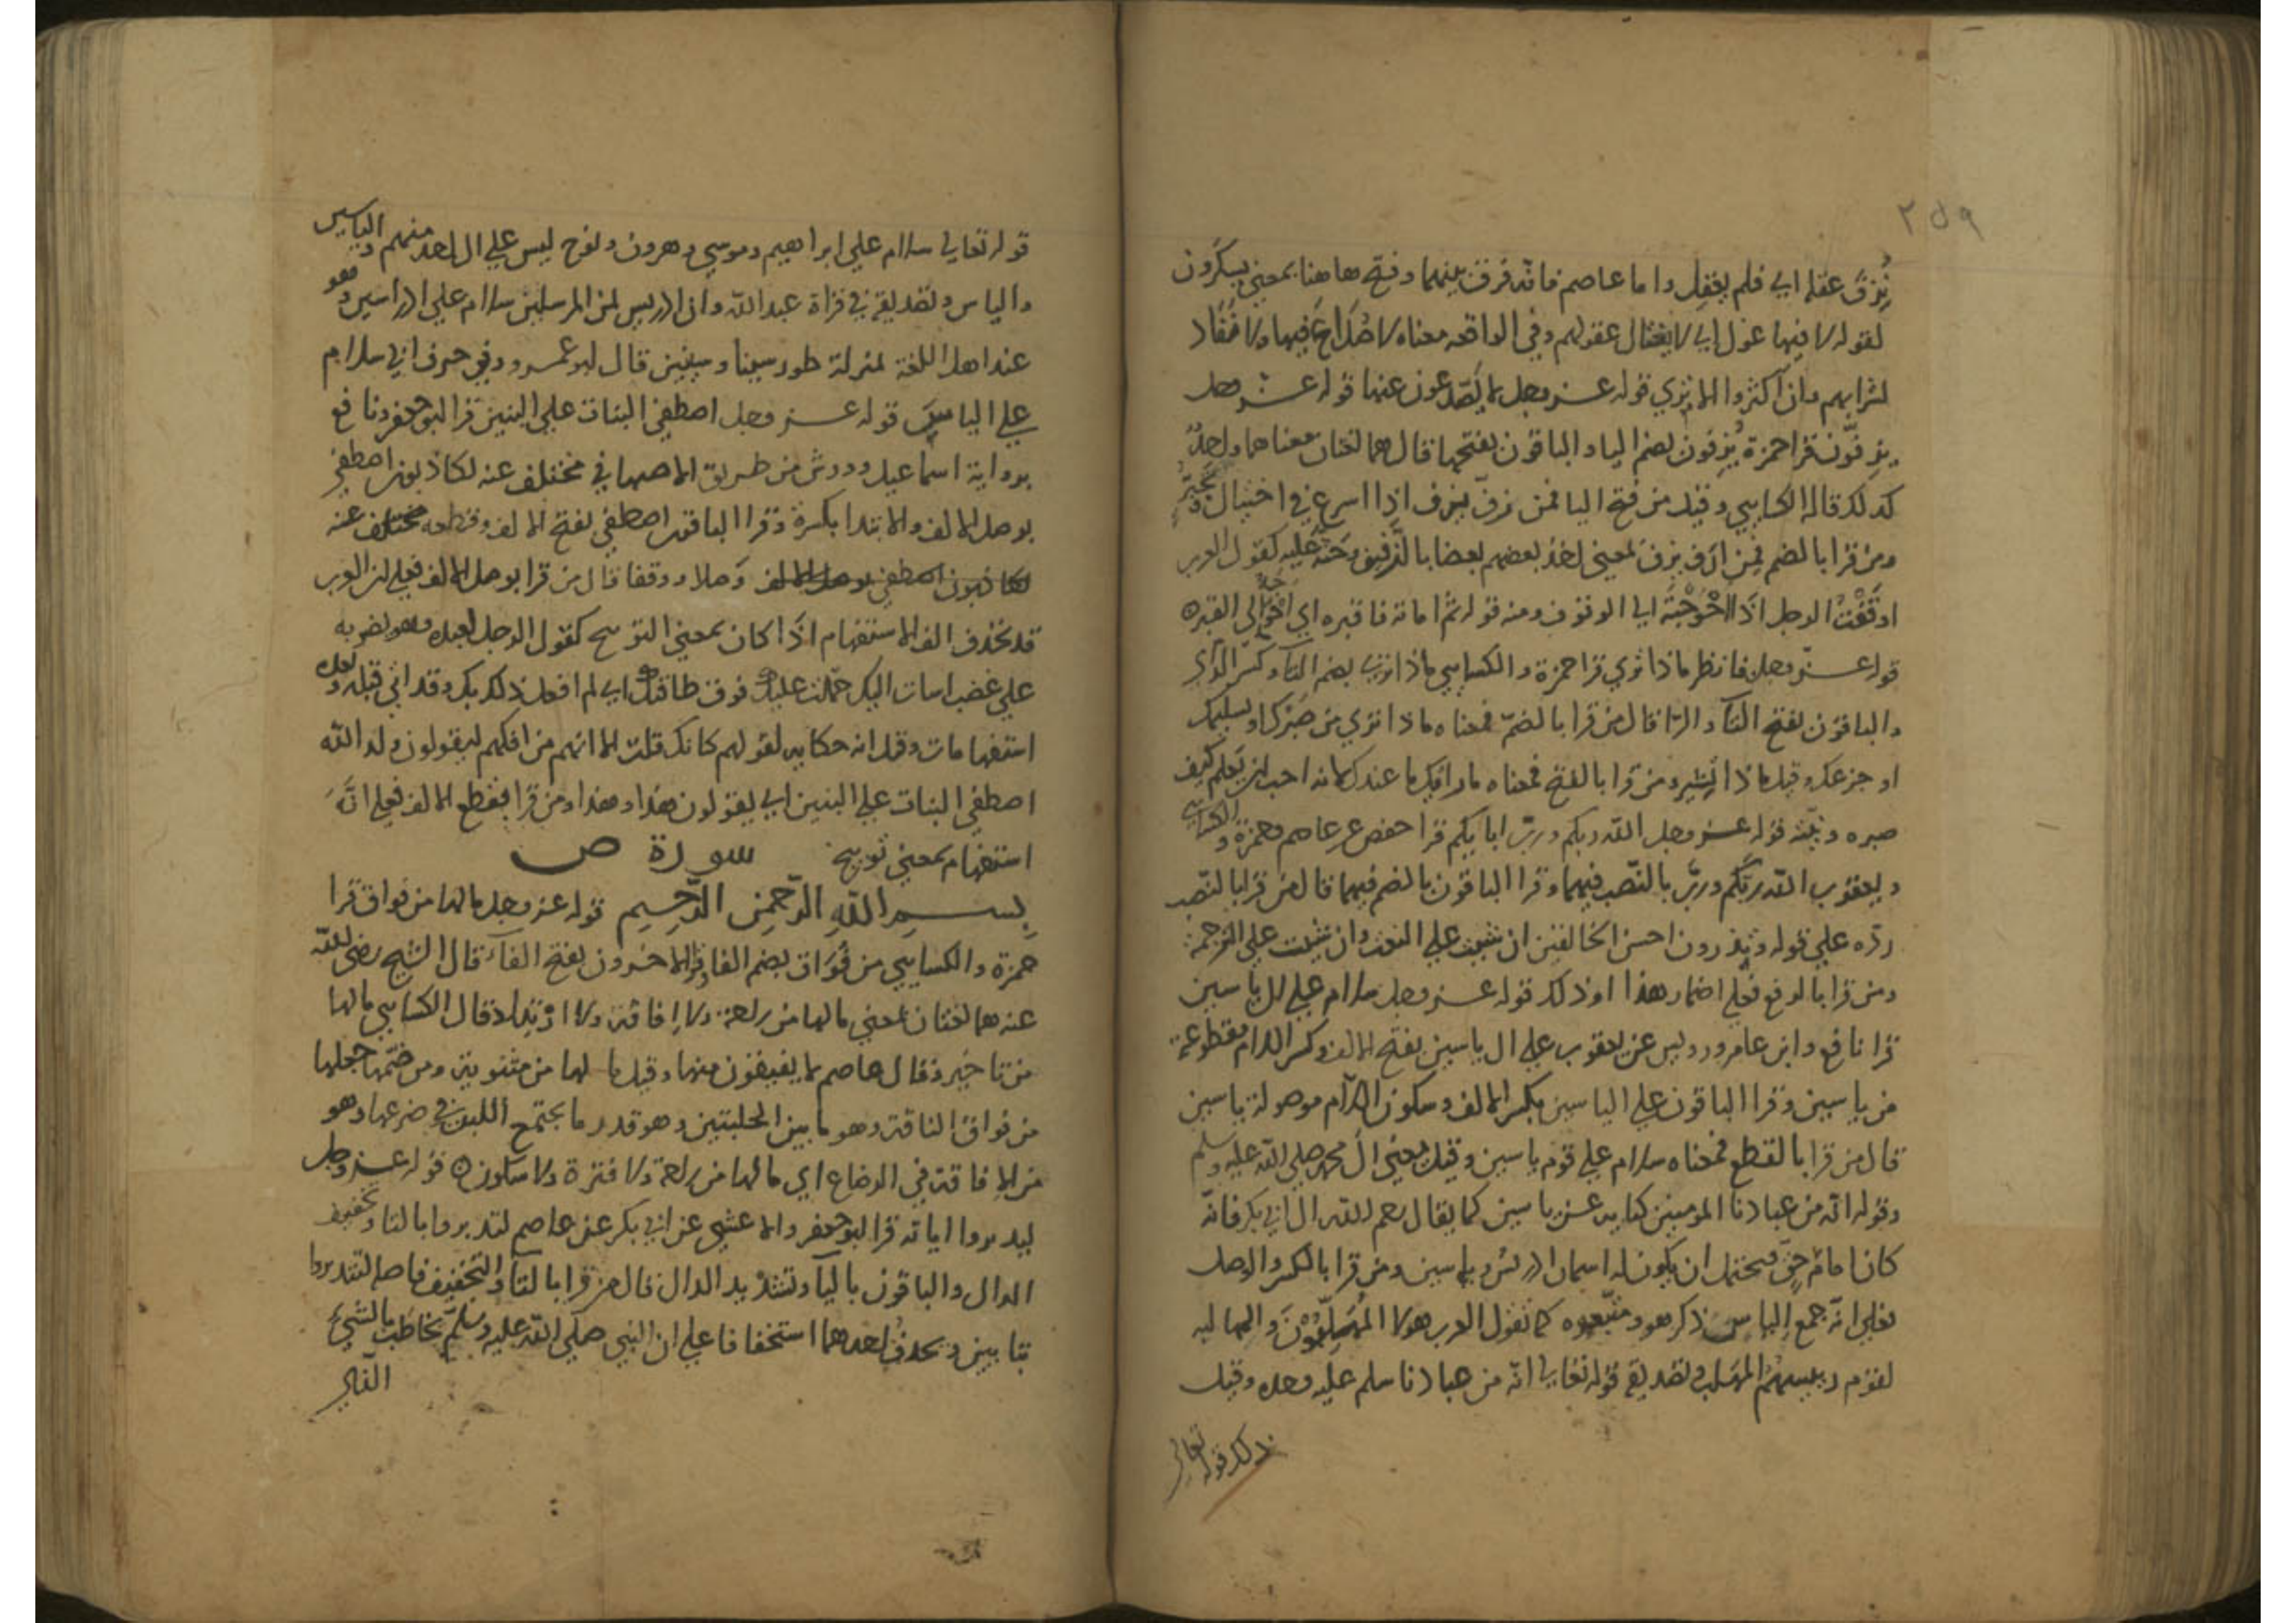 ٢٥٩
نُزِفَ عقله اي فلم يعقل واما عاصم فانه فرق بينهما وفتح هاهنا بمعنى يسكرون
لقوله لا فيها غول اي لا يغتال عقولهم وفي الواقعه معناه لا صُداع فيها ولا نفاد
لشرابهم وان اكثروا الا يرى قوله عز وجل لا يصّدعون عنها قوله عز وجل
يزِفّون قرا حمزة يُزفون بضم اليا والباقون بفتحها قال هما لغتان معناهما واحد
كذلك قاله الكسايي وقيل من فتح اليا فمن زفّ يزف اذا اسرع في اختيال و
ومن قرا بالضم فمن ازف يزف لمعنى اخذ بعضهم بعضا بالزفيف وحثه عليه كقول العرب
اوقفت الرجل اذا احوجته الى الوقوف ومنه قوله ثم اماته فاقبره اي الى القبر ه
قوله عز وجل فانظر ماذا ترى قرا حمزة والكسايي ماذا تري بضم التا وكسر الرا
والباقون بفتح التآ والرا قال من قرا بالضم فمعناه ماذا تري من صبرك او تسليمك
او جزعك وقيل ماذا تشير ومن قرا بالفتح فمعناه ما رايك ما عندك كانه احب ان يعلم كيف
صبره و قوله عز وجل الله ربكم ورب ابايكم قرا حفص عن عاصم وحمزة والكسايي
ويعقوب الله ربَّكم وربَّ بالنصب فيهما وقرا الباقون بالضم فيهما قال من قرا بالنصب
ردّه على قوله وتذرون احسن الخالقين ان شيت على النعت وان شيت على الترجمة
ومن قرا بالرفع فعلى اضمار هذا او ذلك قوله عز وجل سلام على ال ياسين
قرا نافع وابن عامر ورويس عن يعقوب على ال ياسين بفتح الالف وكسر اللام مقطوعة
من ياسين وقرا الباقون على الياسين بكسر الالف وسكون اللام موصولة بياسين
قال من قرا بالقطع فمعناه سلام على قوم ياسين وقيل بمعنى ال محمد صلى الله عليه وسلم
وقوله انه من عبادنا المومنين كنايه عن ياسين كما يقال رحم الله ال ابي بكر فانه
كان امام حق ويحتمل ان يكون له اسمان ادريس وياسين ومن قرا بالكسر والوصل
فعلى انه جمع الياس ذكر هو ومتبعوه كما تقول العرب هولا المهلبون والمهالبه
لقوم المهلب وتصديقه قوله تعالى انه من عبادنا سلم عليه وحده وقيل
ذلك قوله تعالى
قوله تعالى سلام على ابراهيم وموسى وهرون ونوح ليس على ال احد منهم والياسين
والياس وتصديقه في قراة عبدالله وان ادريس لمن المرسلين سلام على ادراسين وهو
عند اهل اللغة لمنزلة طور سينا وسينين قال ابو عمرو وفي حرف ابي سلام
على الياسين قوله عز وجل اصطفى البنات على البنين قرا ابو جعفر ونافع
برواية اسماعيل وورش من طريق الاصبهاني مختلف عنه لكاذبون اصطفى
بوصل الالف والابتدا بكسرة وقرا الباقون اصطفى بفتح الالف وقطعه مختلف عنه
لكاذبون اصطفى بوصل الالف وصلا ووقفا قال من قرا بوصل الالف فعلى ان العرب
قد تحذف الف الاستفهام اذا كان بمعنى التوبيخ كقول الرجل لعبده وهو يضربه
على غضب اسات اليك حملت عليك فوق طاقتك اي لم افعل ذلك بك وقد اتى قبله وبعده
استفهامات وقيل انه حكايه لقولهم كانك قلت الا انهم من افكهم ليقولون ولد الله
اصطفى البنات على البنين اي يقولون هذا وهذا ومن قرا بقطع الالف فعلى انه
استفهام بمعنى توبيخ سورة ص
بسم الله الرحمن الرحيم قوله عز وجل ما لها من فواق قرا
حمزة والكسايي من فُوَاق بضم الفا وقرا الاخرون بفتح الفآء قال الشيخ رضي الله
عنه هما لغتان لمعنى ما لها من راحة ولا افاقة ولا ارتداد قال الكسايي ما لها
من تاخير وقال عاصم لا يفيقون منها وقيل ما لها من مثنوية ومن ضمها جعلها
من فواق الناقة وهو ما بين الحلبتين وهو قدر ما يجتمع اللبن في ضرعها وهو
من الافاقة في الرضاع اي ما لها من راحة ولا فترة ولا سكون ه قوله عز وجل
ليدبروا اياته قرا ابو جعفر والاعشى عن ابي بكر عن عاصم لتدبروا بالتا وتخفيف
الدال والباقون باليآ وتشديد الدال قال من قرا بالتا والتخفيف فاصله لتتدبروا
بتايين وتحذف احدهما استخفافا على ان النبي صلى الله عليه وسلم يخاطب بالشيئ